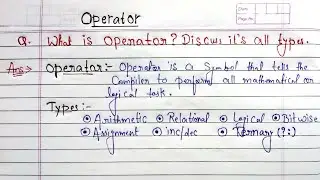 Operator
Q. What is Operator? Discuss it's all types.
Ans → Operator:- Operator is a Symbol that tells the
Compiler to perform all mathematical or
logical task.
Types:-
Arithmetic Relational Logical Bitwise
Assignment inc/dec Ternary (?:)